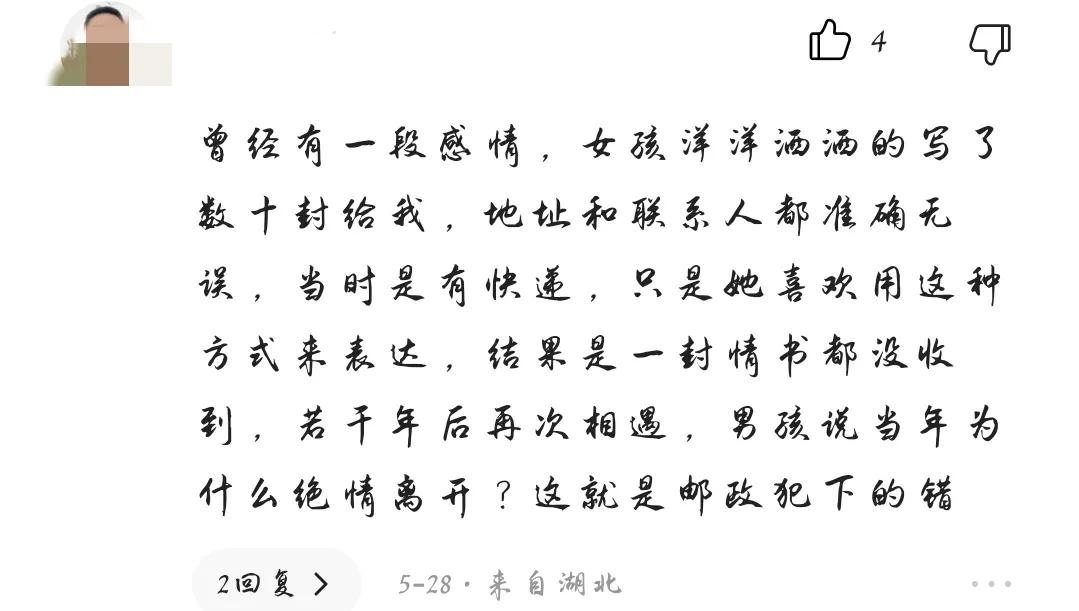 4
曾经有一段感情，女孩洋洋洒洒的写了
数十封给我，地址和联系人都准确无
误，当时是有快递，只是她喜欢用这种
方式来表达，结果是一封情书都没收
到，若干年后再次相遇，男孩说当年为
什么绝情离开？这就是邮政犯下的错
2回复
5-28·来自湖北